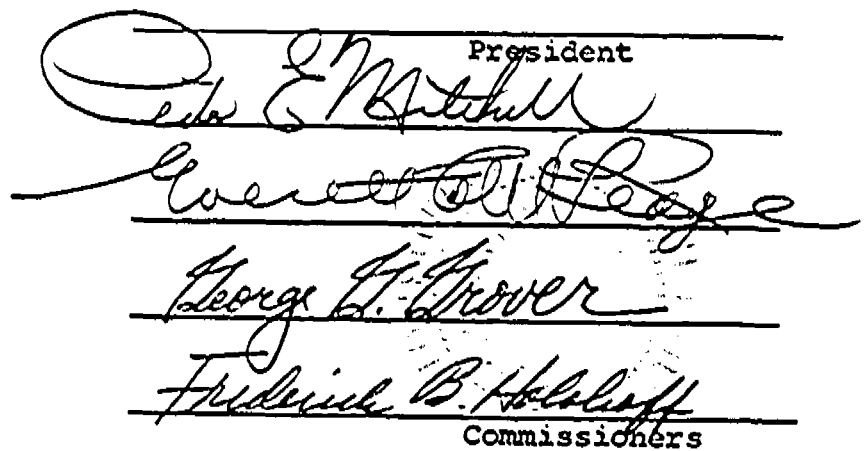 President
Peter E Mitchell
Everett C. McKeage
George G. Grover
Frederick B. Holoboff
Commissioners